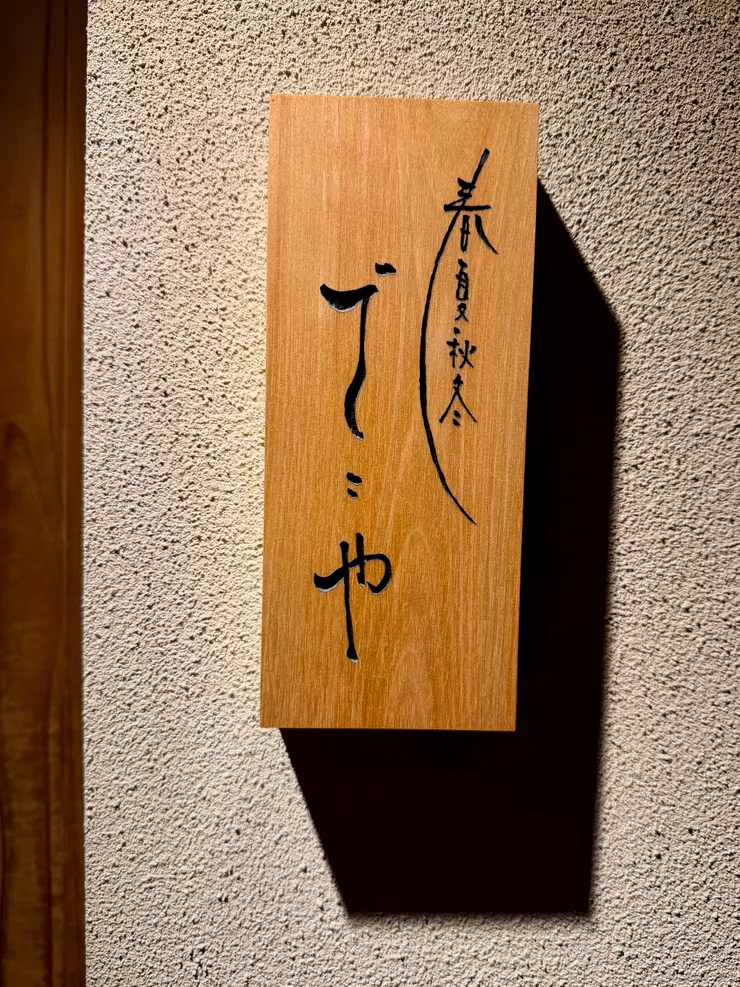 春夏秋冬
でこや